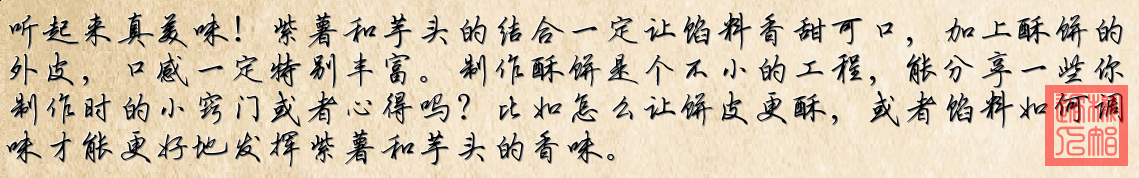 听起来真美味！紫薯和芋头的结合一定让馅料香甜可口，加上酥饼的
外皮，口感一定特别丰富。制作酥饼是个不小的工程，能分享一些你
制作时的小窍门或者心得吗？比如怎么让饼皮更酥，或者馅料如何调
味才能更好地发挥紫薯和芋头的香味。